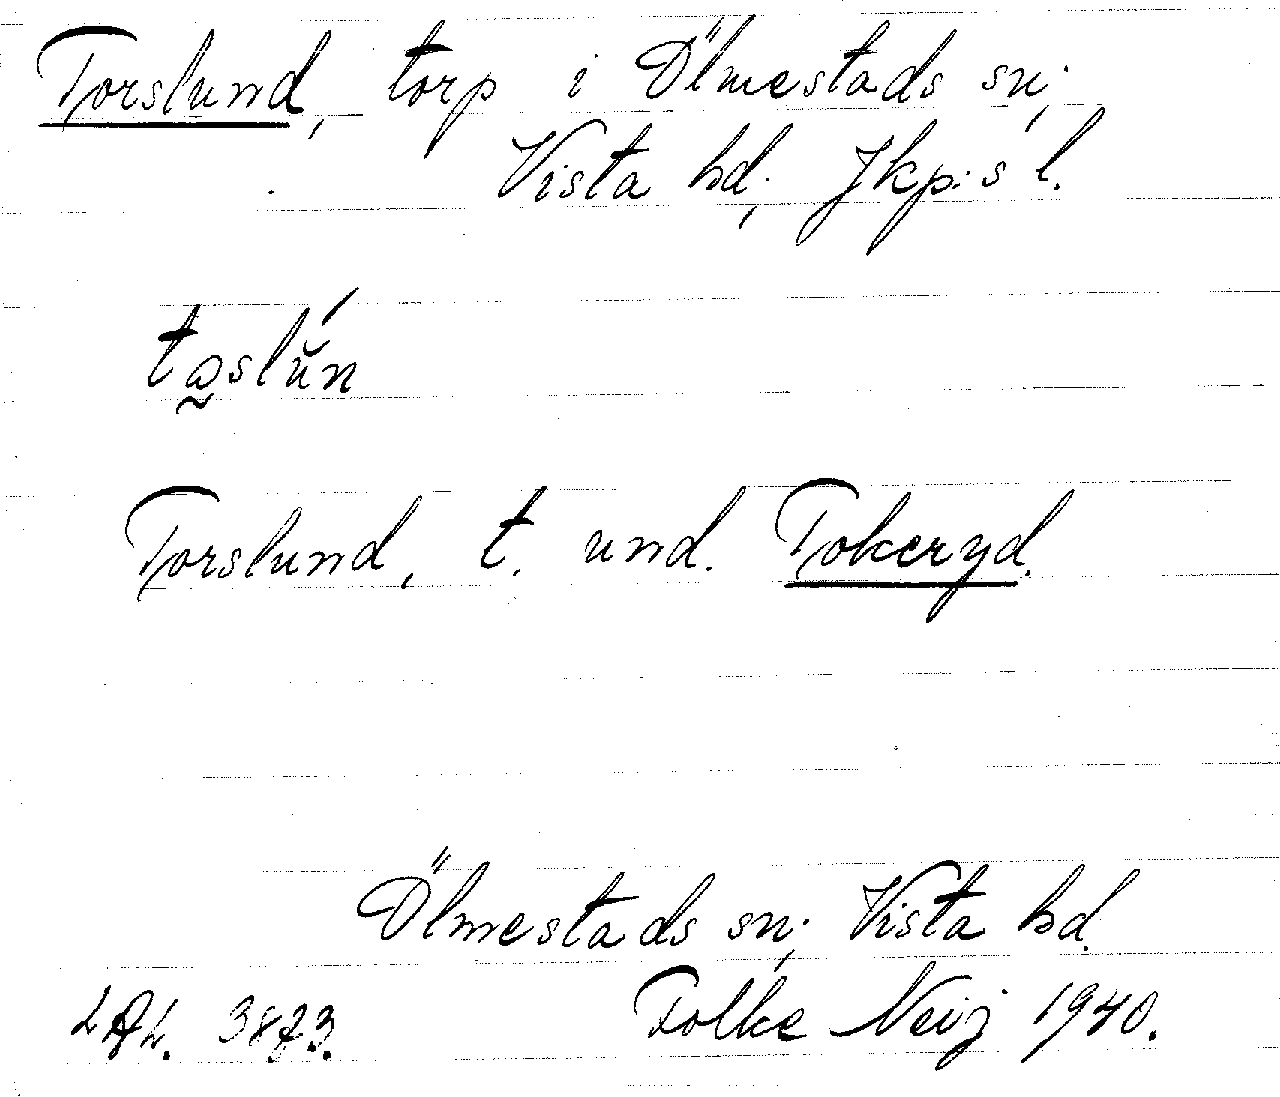 Torslund, torp i Ölmestads sn;
Vista hd; Jkp:s l.
Torslund, t. und. Tokeryd.
Ölmestads sn; Vista hd.
3873. Folke Neij 1940.